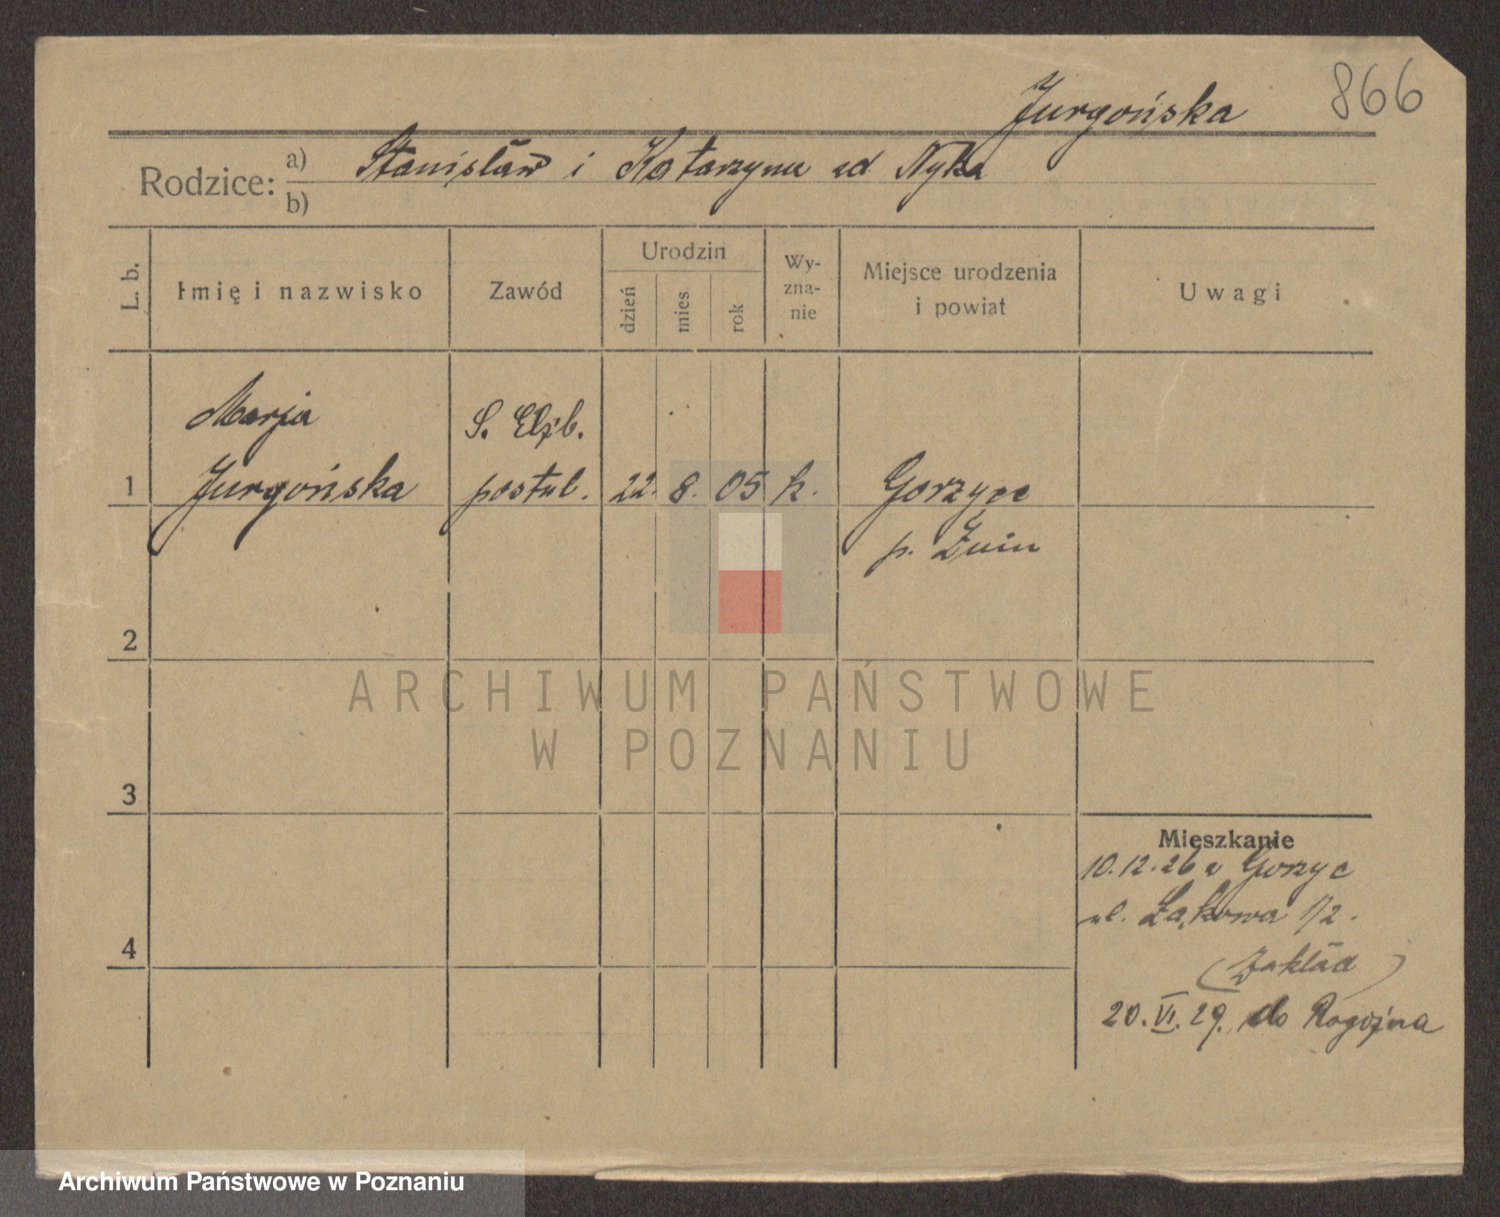 866
Jurgońska
Rodzice: a) Stanisław i Katarzyna zd Nyka
b)
L. b. Imię i nazwisko Zawód Urodzin dzień mies. rok Wyznanie Miejsce urodzenia i powiat Uwagi
Marja S. Elżb.
1 Jurgońska postul. 22. 8. 05 k. Gorzyce
p. Żnin
2
ARCHIWUM PAŃSTWOWE
W POZNANIU
3
Mieszkanie
10.12.26 z Gorzyc
ul. Łąkowa 1/2.
4
(Zakład)
20.VI.29. do Rogoźna
Archiwum Państwowe w Poznaniu